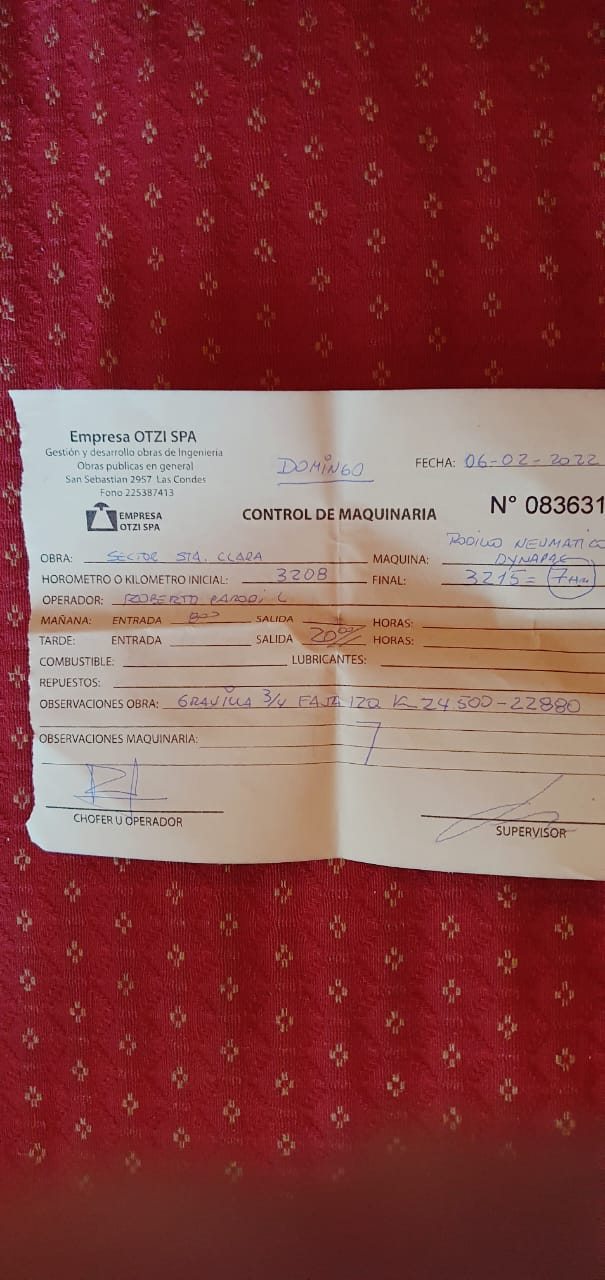 Empresa OTZI SPA
Gestión y desarrollo obras de Ingenieria
Obras publicas en general
San Sebastian 2957 Las Condes
Fono 225387413
EMPRESA
OTZI SPA
DOMINGO
FECHA: 06-02-2022
CONTROL DE MAQUINARIA
N° 083631
OBRA: SECTOR STA. CLARA
MAQUINA: RODILLO NEUMATICO
DYNAPAC
HOROMETRO O KILOMETRO INICIAL: 3208
FINAL: 3215 = 7
OPERADOR: ROBERTO PARODI
MAÑANA: ENTRADA 8 00 SALIDA HORAS:
TARDE: ENTRADA SALIDA 20 00 HORAS:
COMBUSTIBLE: LUBRICANTES:
REPUESTOS:
OBSERVACIONES OBRA: GRAVILLA 3/4 FAJA IZQ K 24.500-22880
OBSERVACIONES MAQUINARIA:
CHOFER U OPERADOR
SUPERVISOR